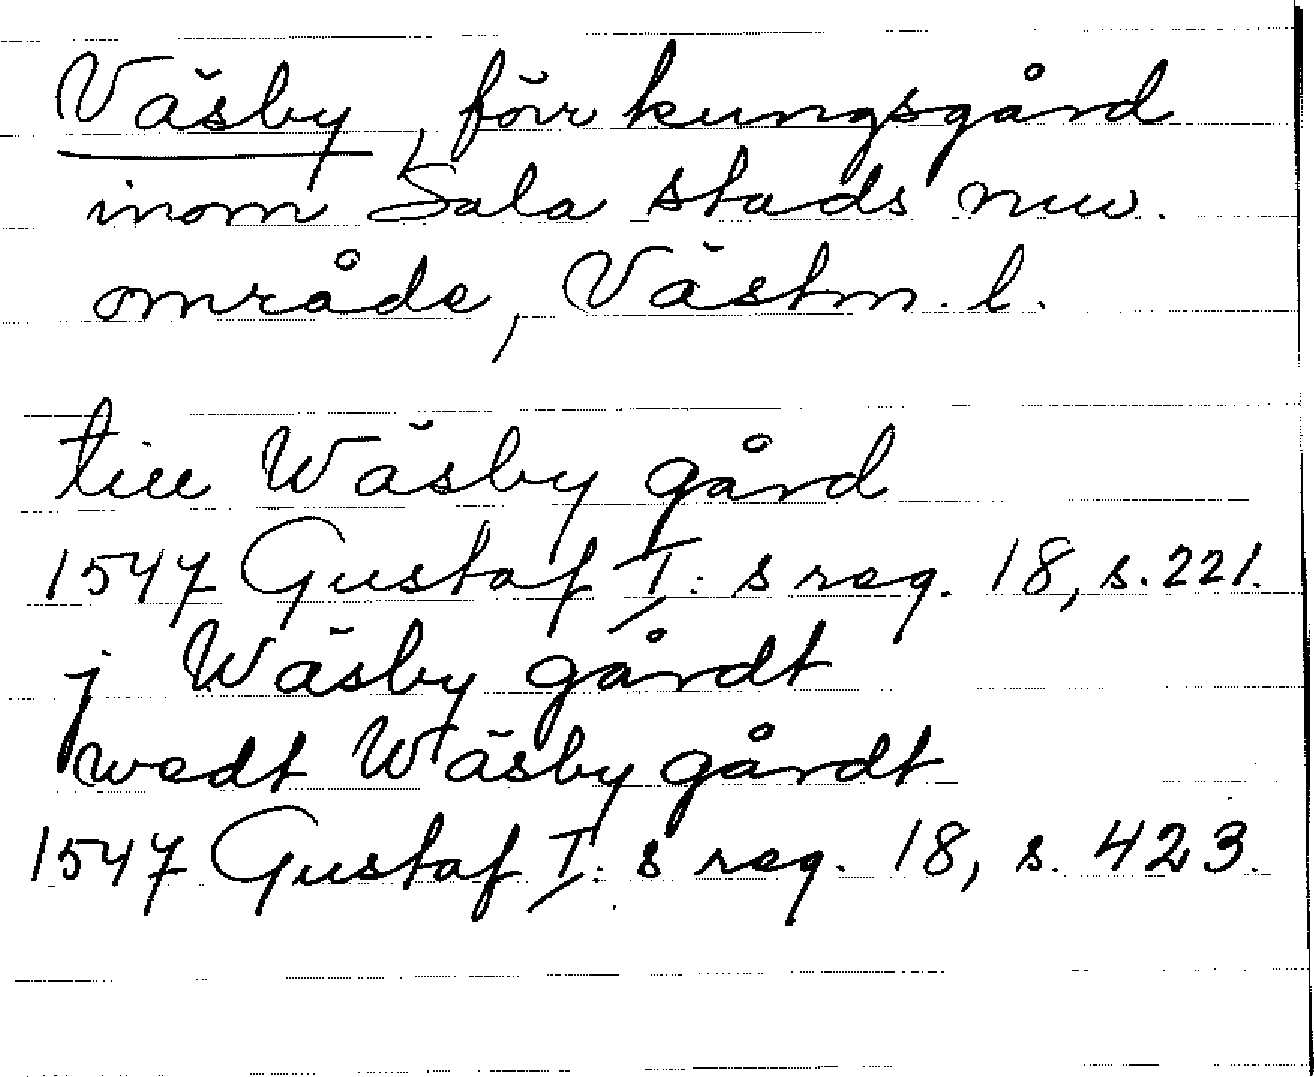 Väsby, förr kungsgård
inom Sala stads nuv.
område, Västm. l.
till Wäsby gård
1547 Gustaf I:s reg. 18, s. 221.
j Wäsby gårdt
wedt Wäsby gårdt
1547 Gustaf I:s reg. 18, s. 423.